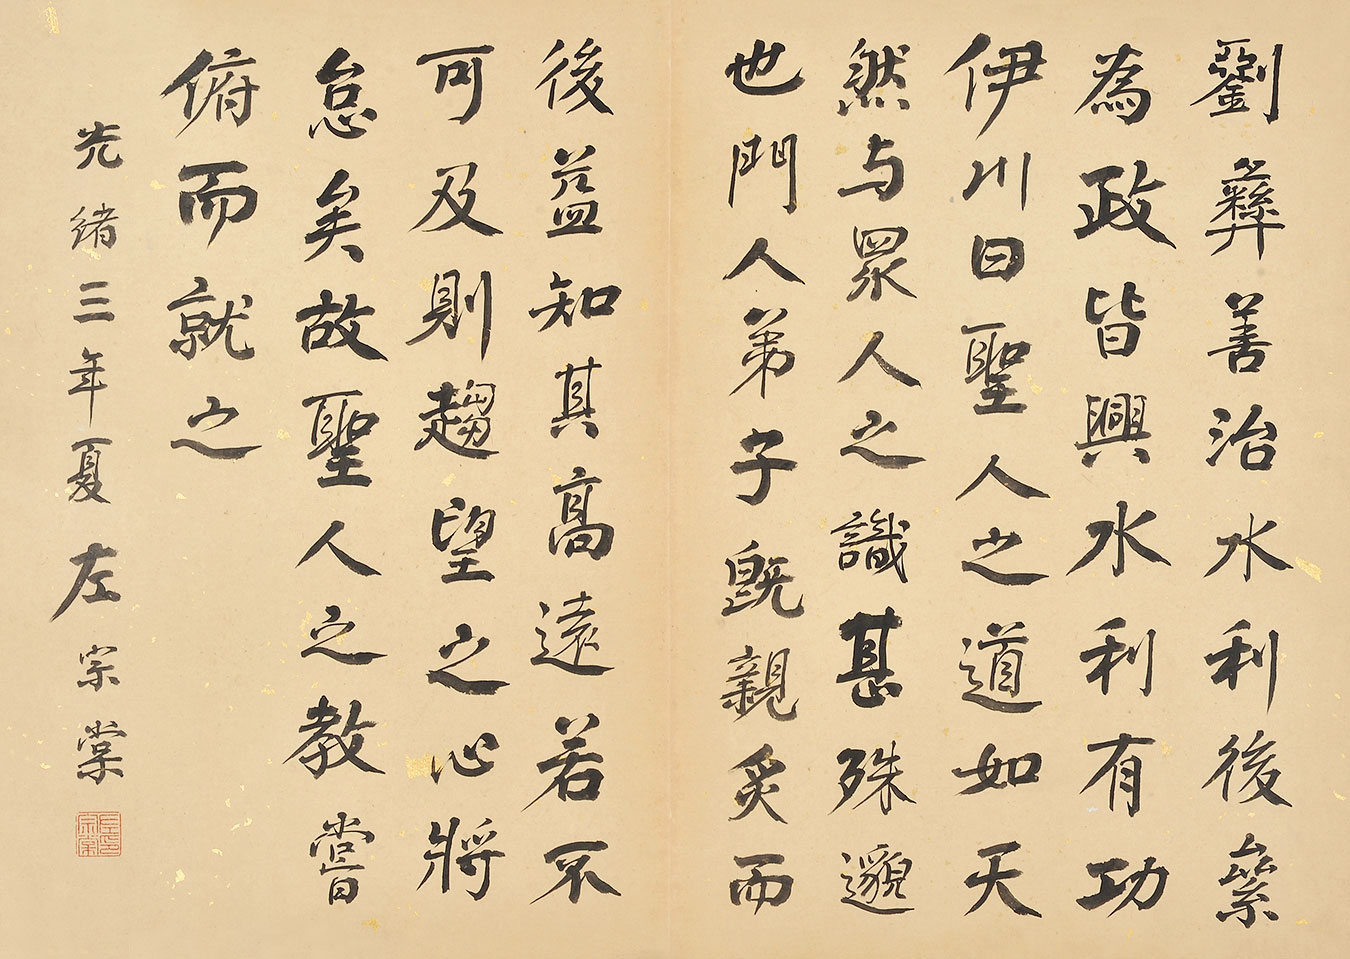 劉彝善治水利後絫
為政皆興水利有功
伊川曰聖人之道如天
然与眾人之識甚殊邈
也門人弟子既親炙而
後益知其高遠若不
可及則趨望之心將
怠矣故聖人之教嘗
俯而就之
光緒三年夏左宗棠
左印宗棠